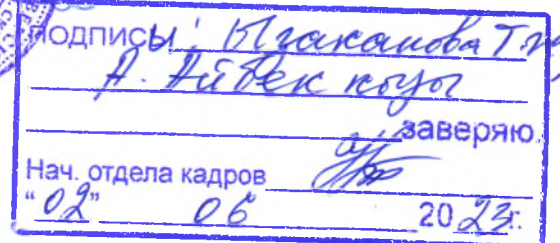 подписи: Ысаканова Т.
А. Айбек кызы
заверяю.
Нач. отдела кадров
"02" 06 2023г.